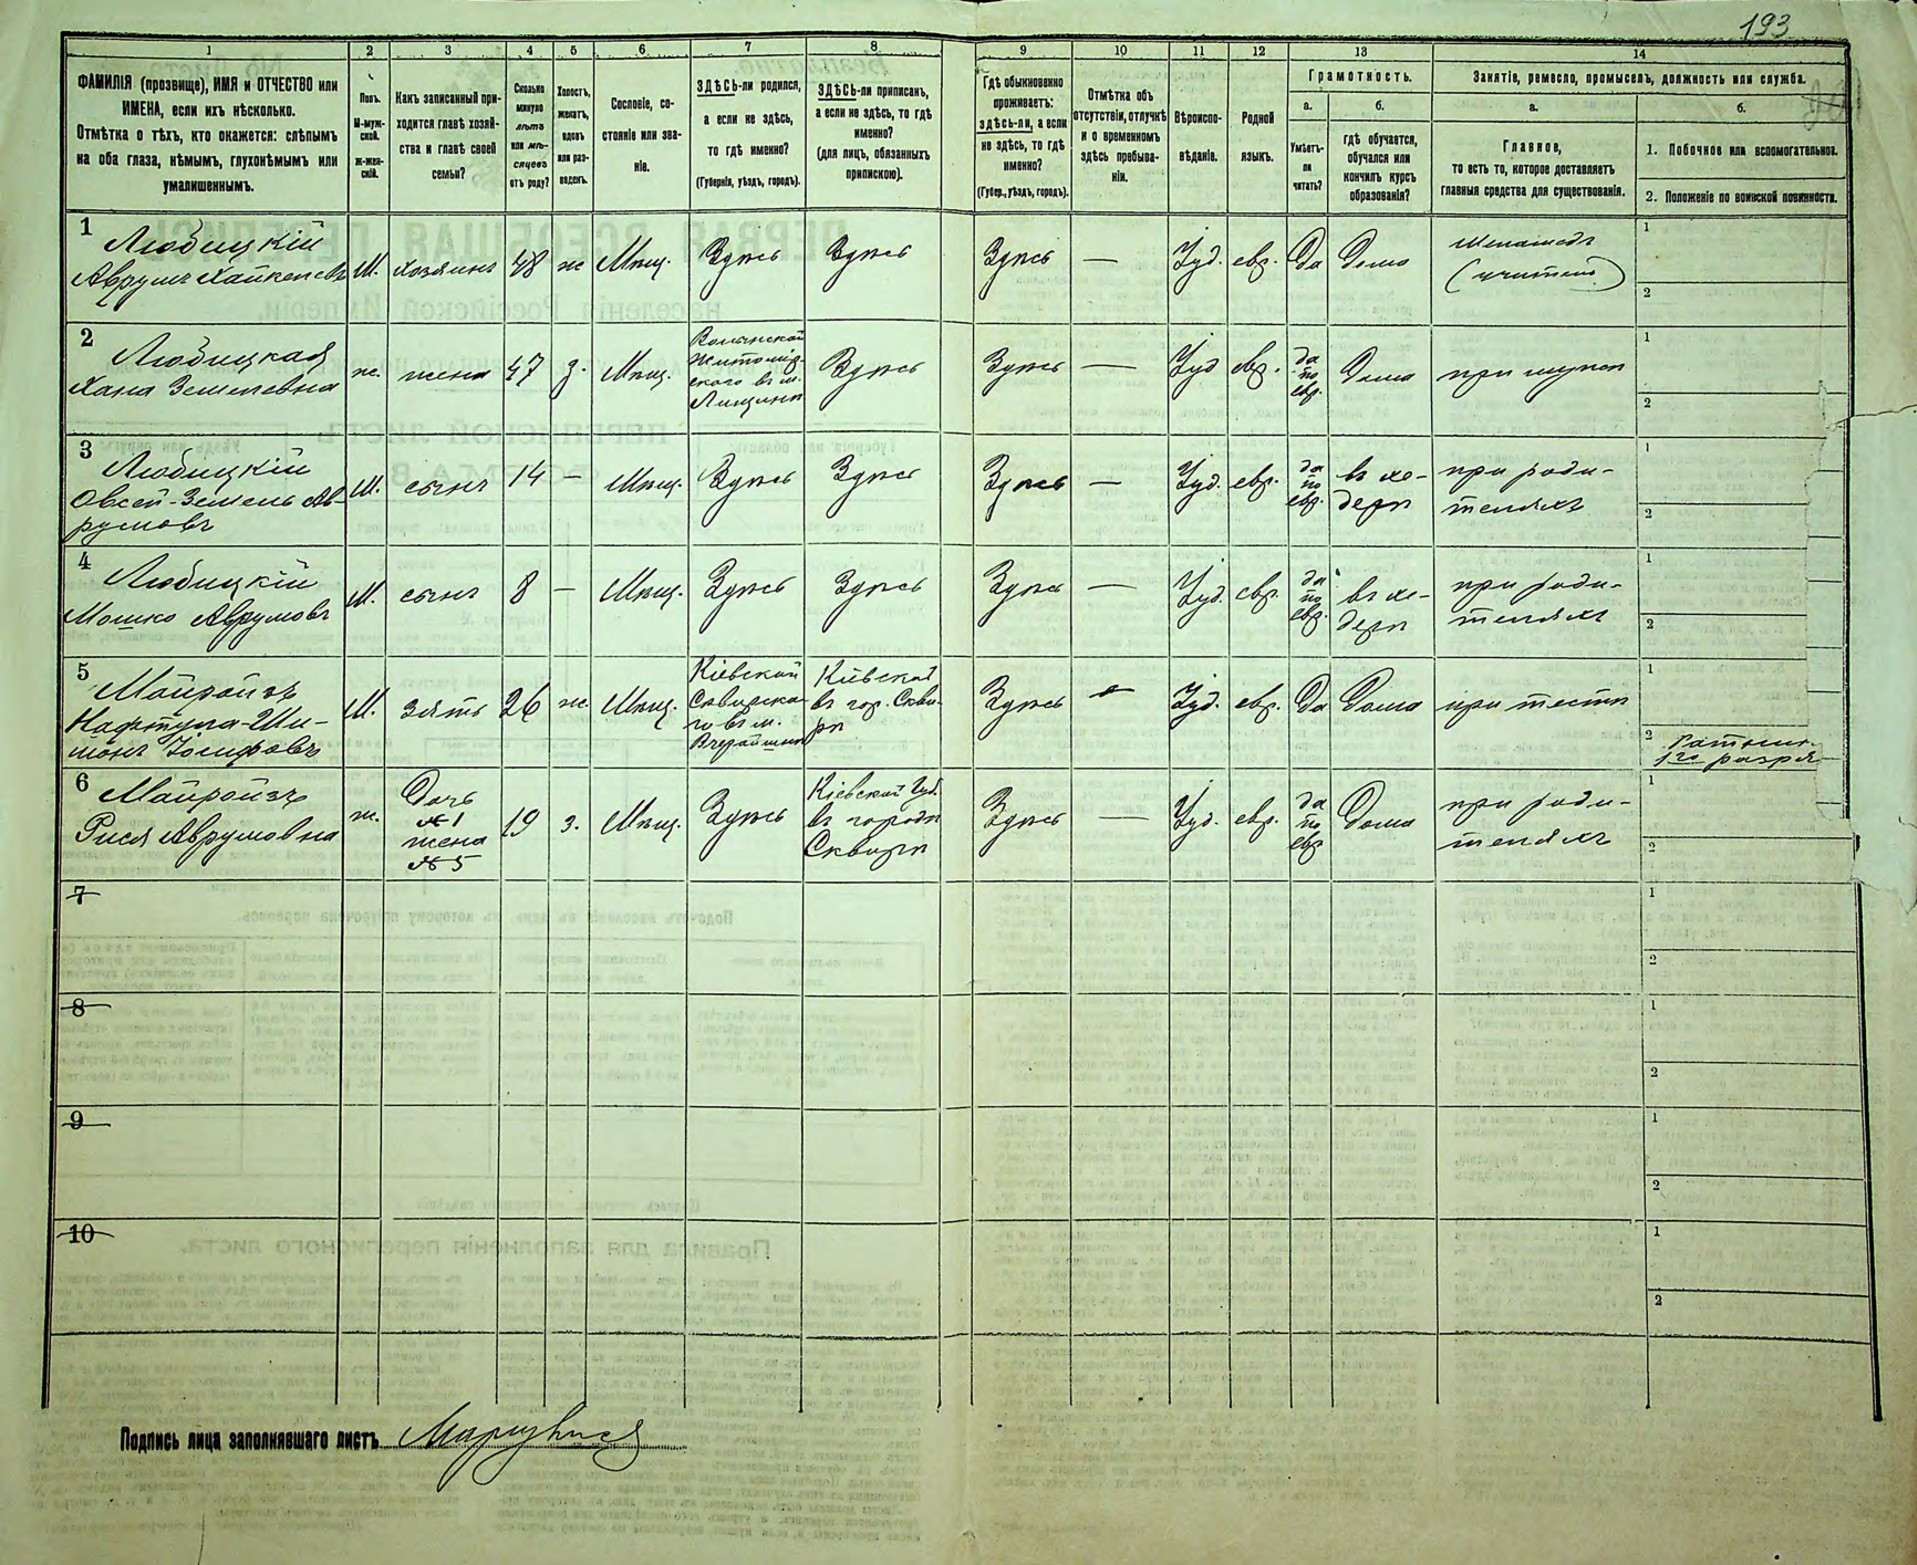 193
1 2 3 4 5 6 7 8 9 10 11 12 13 14
ФАМИЛІЯ (прозвище), ИМЯ и ОТЧЕСТВО или
ИМЕНА, если ихъ нѣсколько.
Отмѣтка о тѣхъ, кто окажется: слѣпымъ
на оба глаза, нѣмымъ, глухонѣмымъ или
умалишеннымъ.
Полъ.
М-муж-
ской.
Ж-жен-
скій.
Какъ записанный при-
ходится главѣ хозяй-
ства и главѣ своей
семьи?
Сколько
минуло
лѣтъ
или мѣ-
сяцевъ
отъ роду?
Холостъ,
женатъ,
вдовъ
или раз-
веденъ.
Сословіе, со-
стояніе или зва-
ніе.
ЗДѢСЬ-ли родился,
а если не здѣсь,
то гдѣ именно?
(Губернія, уѣздъ, городъ).
ЗДѢСЬ-ли приписанъ,
а если не здѣсь, то гдѣ
именно?
(для лицъ, обязанныхъ
припискою).
Гдѣ обыкновенно
проживаетъ:
здѣсь-ли, а если
не здѣсь, то гдѣ
именно?
(Губер., уѣздъ, городъ).
Отмѣтка объ
отсутствіи, отлучкѣ
и о временномъ
здѣсь пребыва-
ніи.
Вѣроиспо-
вѣданіе.
Родной
языкъ.
Грамотность.
а.
Умѣетъ-
ли
читать?
б.
гдѣ обучается,
обучался или
кончилъ курсъ
образованія?
Занятіе, ремесло, промыселъ, должность или служба.
а.
Главное,
то есть то, которое доставляетъ
главныя средства для существованія.
б.
1. Побочное или вспомогательное.
2. Положеніе по воинской повинности.
1
Любицкій
Аврумъ Хайкелевъ
М.
хозяинъ
48
ж
Мѣщ.
Здѣсь
Здѣсь
Здѣсь
—
Іуд.
евр.
Да
Дома
Меламедъ
(учитель)
1
2
2
Любицкая
Хана Земелевна
ж.
жена
47
з.
Мѣщ.
Волынской
Житомір-
ского въ м.
Здѣсь
Здѣсь
—
Іуд
евр.
да
по
евр.
Дома
при мужѣ
1
2
3
Любицкій
Овсей-Земель Ав-
румовъ
М.
сынъ
14
—
Мѣщ.
Здѣсь
Здѣсь
Здѣсь
—
Іуд.
евр.
да
по
евр.
въ хе-
дерѣ
при роди-
теляхъ
1
2
4
Любицкій
Мошко Аврумовъ
М.
сынъ
8
—
Мѣщ.
Здѣсь
Здѣсь
Здѣсь
—
Іуд.
евр.
да
по
евр.
въ хе-
дерѣ
при роди-
теляхъ
1
2
5
Майройзъ
Нафтула-Ши-
монъ Іосифовъ
М.
зять
26
ж.
Мѣщ.
Кіевской
Сквирска-
го въ м.
Вчерайшнѣ
Кіевской
въ гор. Скви-
рѣ
Здѣсь
—
Іуд.
евр.
Да
Дома
при тестѣ
1
2
Ратник.
1го разря
6
Майройзъ
Рися Аврумовна
ж.
Дочь
№ 1
жена
№ 5
19
з.
Мѣщ.
Здѣсь
Кіевской Губ.
въ городѣ
Сквирѣ
Здѣсь
—
Іуд.
евр.
да
по
евр
Дома
при роди-
теляхъ
1
2
7
1
2
8
1
2
9
1
2
10
1
2
Подпись лица заполнявшаго листъ